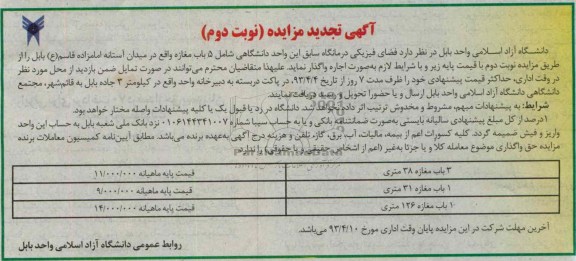 آگهی تجدید مزایده (نوبت دوم)
دانشگاه آزاد اسلامی واحد بابل در نظر دارد فضای فیزیکی درمانگاه سابق این واحد دانشگاهی شامل ۵ باب مغازه واقع در میدان آستانه امامزاده قاسم(ع) بابل را از
طریق مزایده نوبت دوم با قیمت پایه زیر و با شرایط لازم به‌صورت اجاره واگذار نماید. علیهذا متقاضیان محترم می‌توانند در صورت تمایل ضمن بازدید از محل مورد نظر
در وقت اداری، حداکثر قیمت پیشنهادی خود را ظرف مدت ۷ روز از تاریخ ۹۳/۴/۴، در پاکت دربسته به دبیرخانه واحد واقع در کیلومتر ۳ جاده بابل به قائم‌شهر، مجتمع
دانشگاهی دانشگاه آزاد اسلامی واحد بابل ارسال و یا حضوراً تحویل و رسید دریافت نمایند.
شرایط: به پیشنهادات مبهم، مشروط و مخدوش ترتیب اثر داده نخواهد شد. دانشگاه در رد یا قبول یک یا کلیه پیشنهادات واصله مختار خواهد بود.
۱درصد از کل مبلغ پیشنهادی سالیانه بایستی به‌صورت ضمانتنامه بانکی و یا به حساب سیبا شماره ۰۱۰۶۱۴۴۳۴۱۰۰۷ نزد بانک ملی شعبه بابل به حساب این واحد
واریز و فیش ضمیمه گردد. کلیه کسورات اعم از بیمه، مالیات، آب، برق، گاز، تلفن و هزینه درج آگهی به‌عهده برنده می‌باشد. مطابق آیین‌نامه کمیسیون معاملات برنده
مزایده حق واگذاری موضوع معامله کلا و یا جزئا به‌غیر (اعم از اشخاص حقیقی و یا حقوقی) را ندارد.
۳ باب مغازه ۳۸ متری قیمت پایه ماهیانه ۱۱/۰۰۰/۰۰۰
۱ باب مغازه ۳۱ متری قیمت پایه ماهیانه ۹/۰۰۰/۰۰۰
۱ باب مغازه ۱۲۶ متری قیمت پایه ماهیانه ۱۴/۰۰۰/۰۰۰
آخرین مهلت شرکت در این مزایده پایان وقت اداری مورخ ۹۳/۴/۱۰ می‌باشد.
روابط عمومی دانشگاه آزاد اسلامی واحد بابل